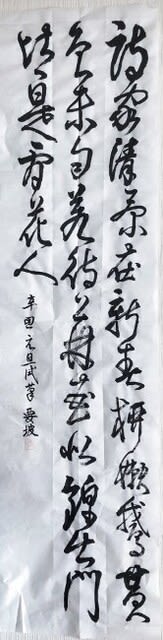 詩家清景在新春柳嫩鵝黃
色未勻若待上林花似錦出門
皆是看花人
辛丑元旦試筆